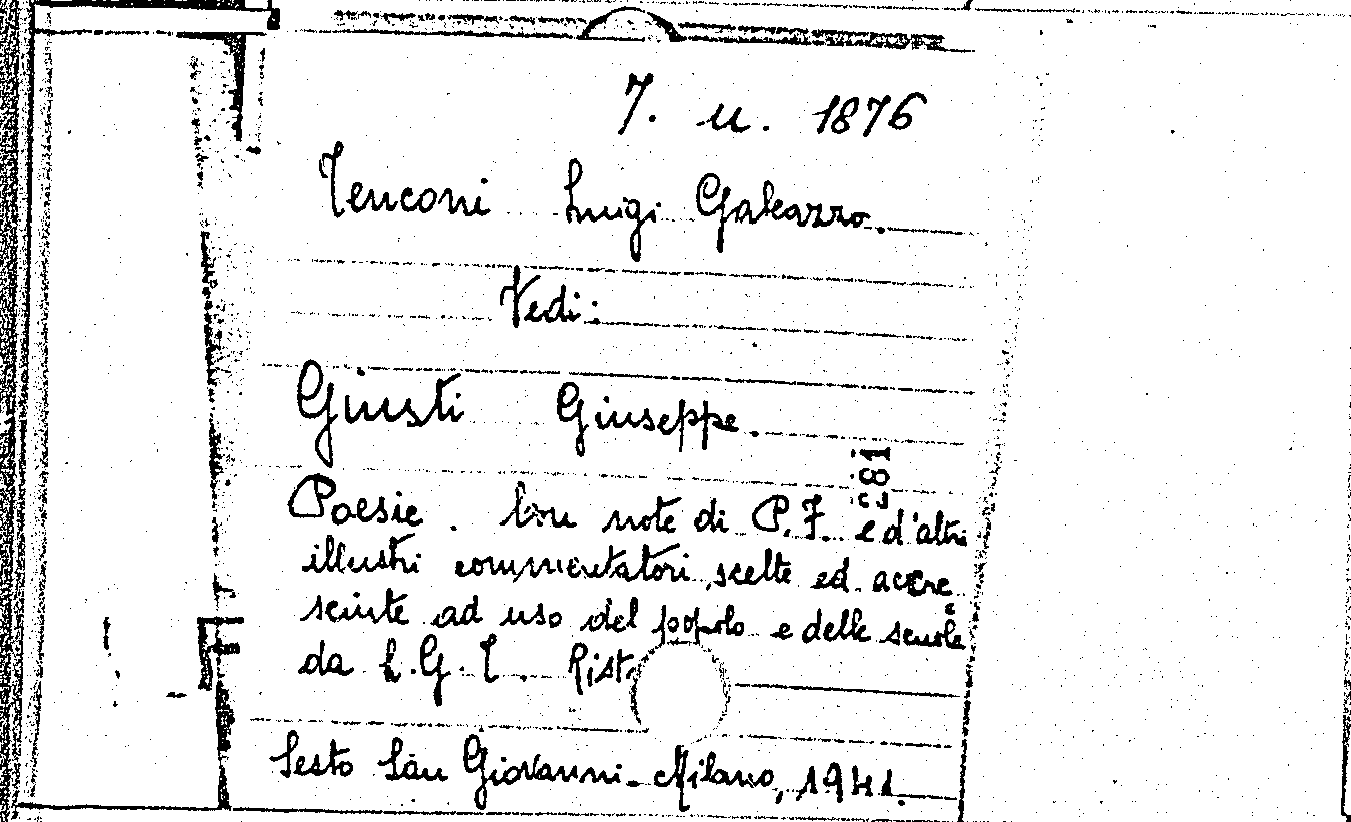 7. u. 1876
Tenconi Luigi Galeazzo.
Vedi:
Giusti Giuseppe.
Poesie. Con note di P. F. e d'altri
illustri commentatori, scelte ed accre
sciute ad uso del popolo e delle scuole
da L. G. T. Rist
Sesto San Giovanni - Milano, 1941.